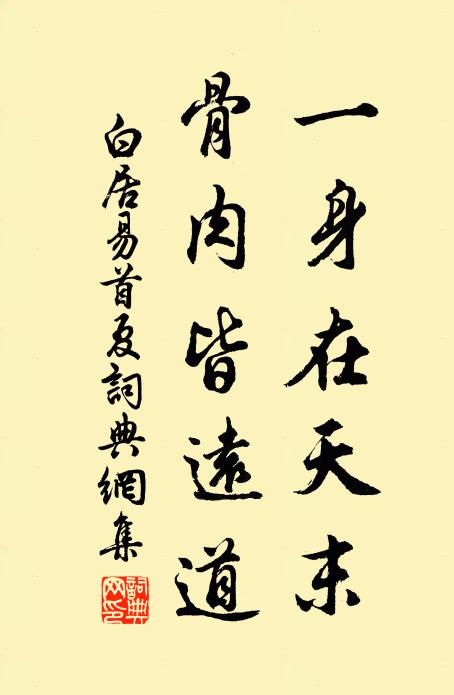 一身在天末
骨肉皆遠道
白居易首夏詞典網集
詞典网印